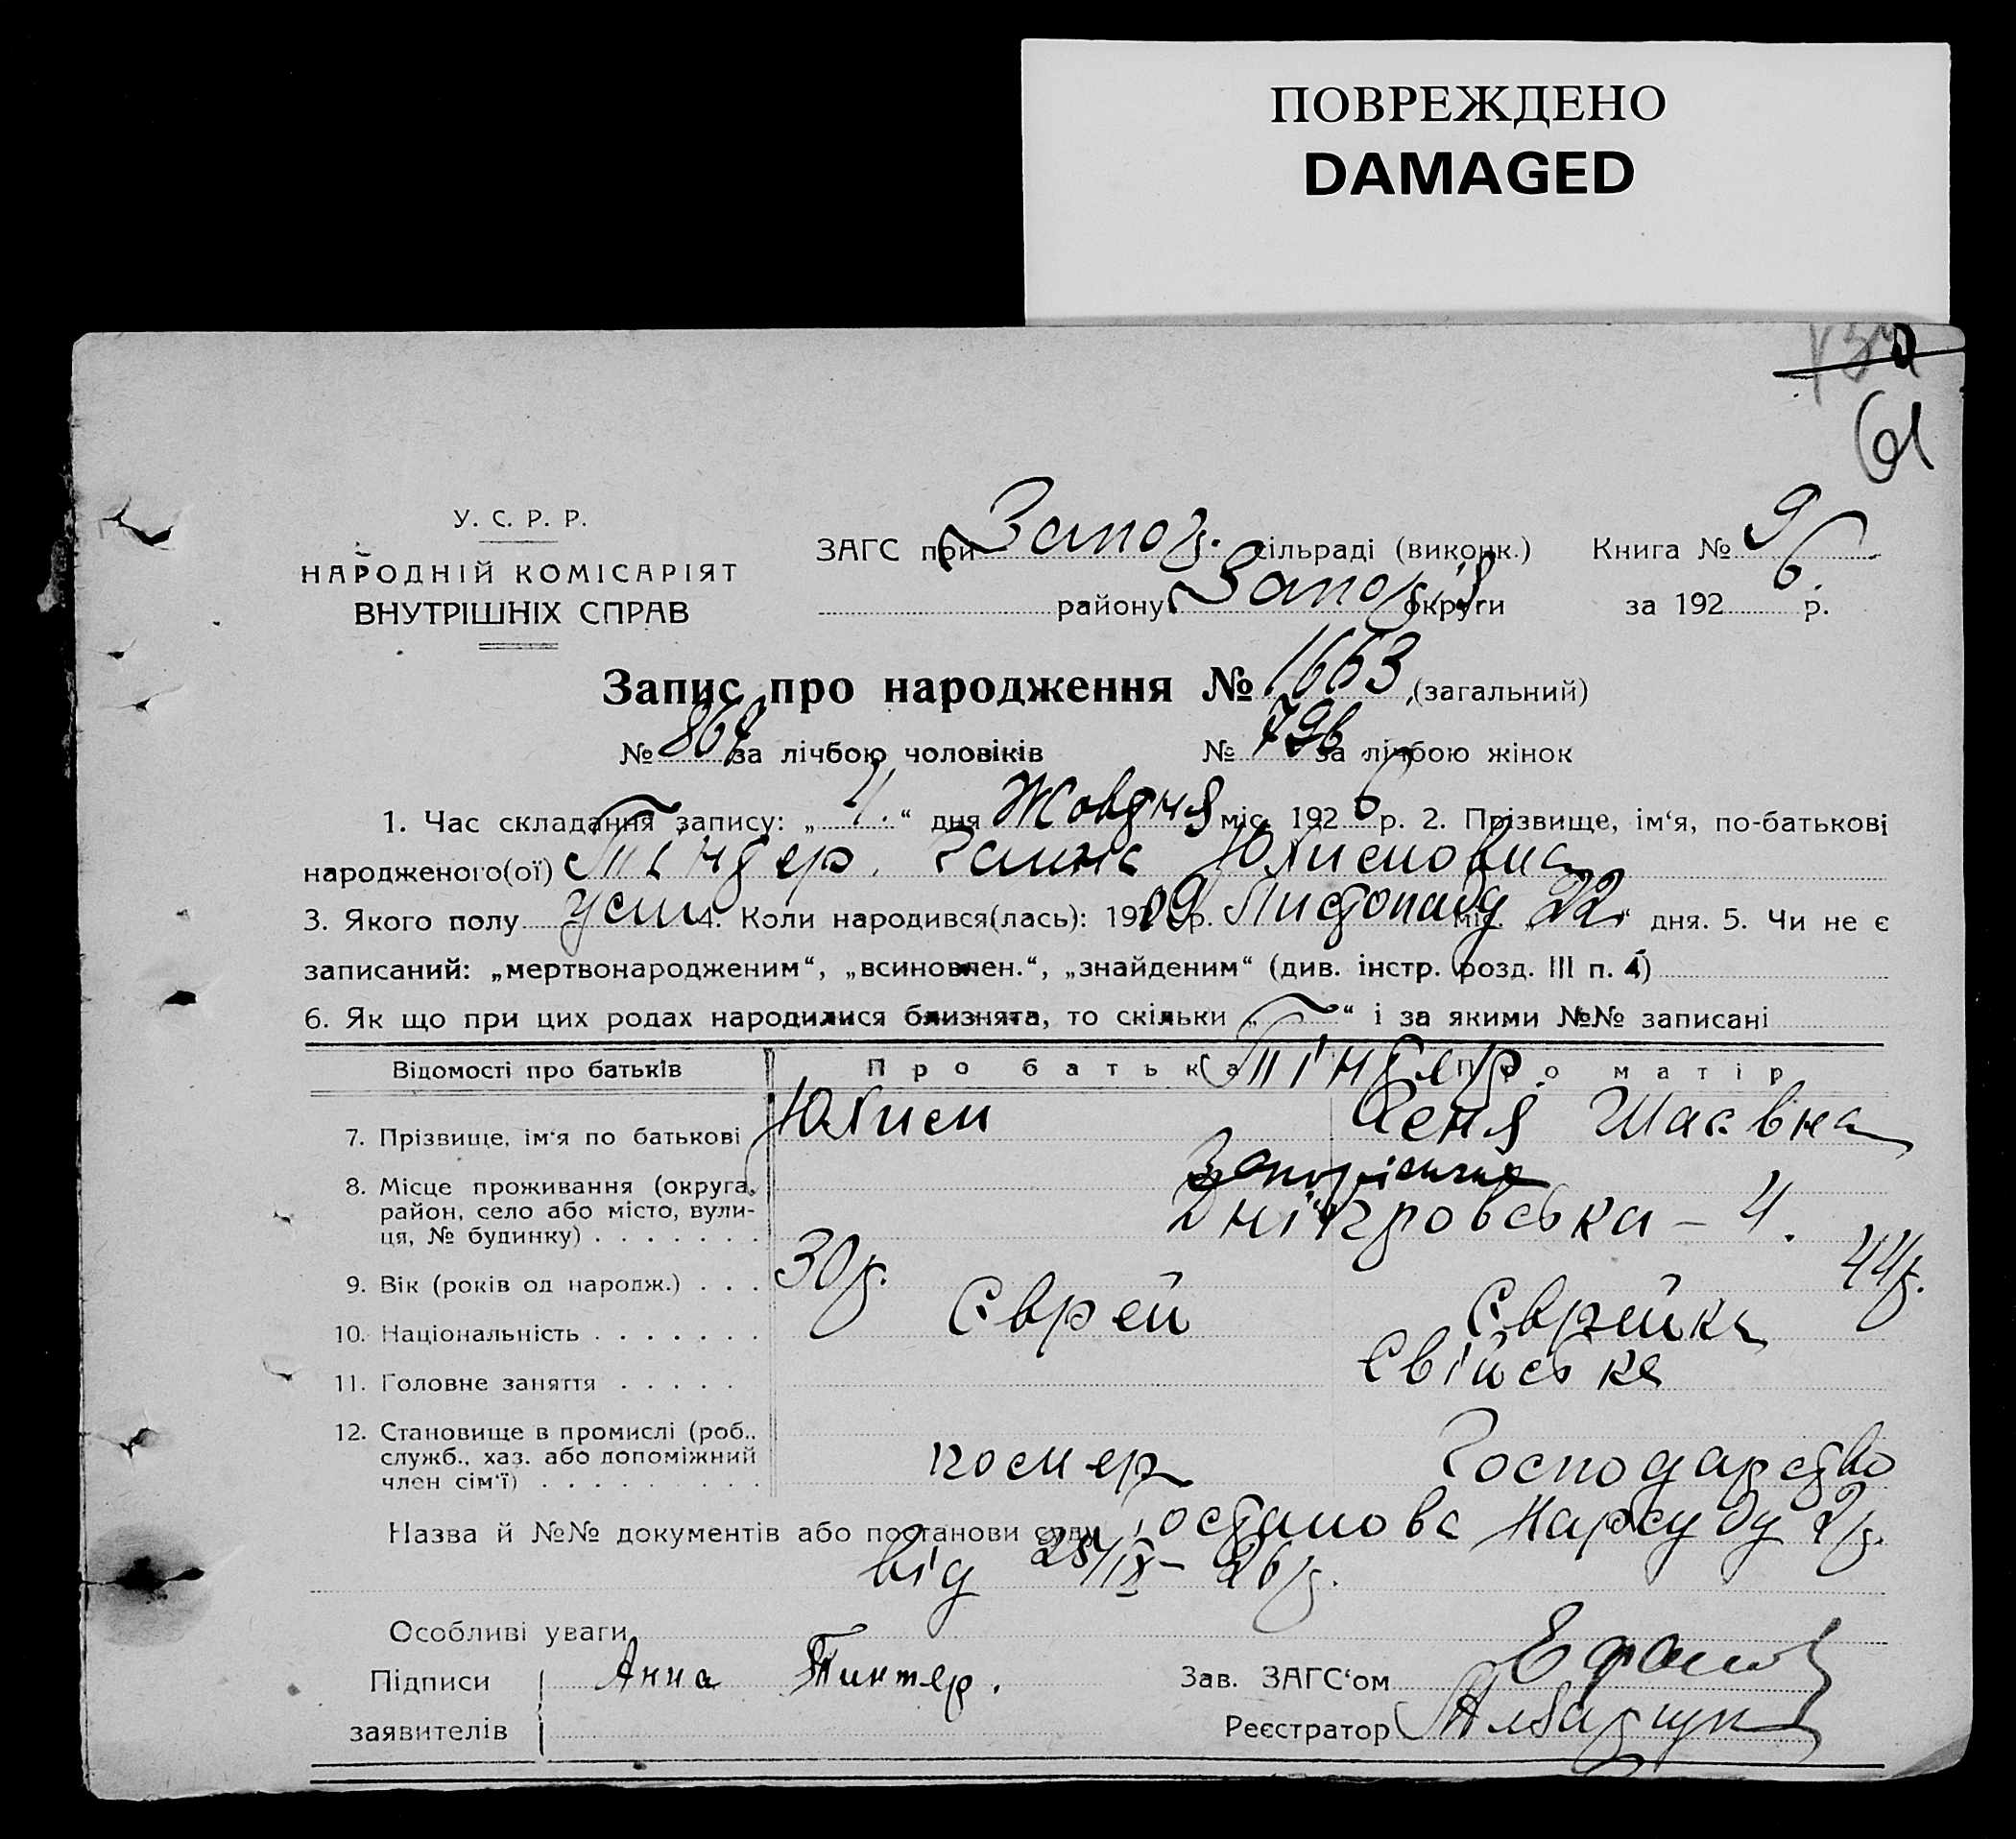 ПОВРЕЖДЕНО
DAMAGED
61
У. С. Р. Р.
НАРОДНІЙ КОМІСАРІЯТ
ВНУТРІШНІХ СПРАВ
ЗАГС при Запоз. сільраді (виконк.) Книга № 9
району Запоріз округи за 192 6 р.
Запис про народження № 1663 (загальний)
№ 867 за лічбою чоловіків № 796 за лічбою жінок
1. Час складання запису: „ 1. “ дня Жовдня міс. 192 6 р. 2. Прізвище, ім‘я, по-батькові
народженого(ої) Тіндер
3. Якого полу 4. Коли народився(лась): 19 09 р. Листопаду міс. „ 22 “ дня. 5. Чи не є
записаний: „мертвонародженим“, „всиновлен.“, „знайденим“ (див. інстр. розд. III п. 4)
6. Як що при цих родах народилися близнята, то скільки „ “ і за якими №№ записані
Відомості про батьків Про батька Тіндер. Про матір
7. Прізвище, ім‘я по батькові Шаєвна
8. Місце проживання (округа, Запоріжжя
район, село або місто, вули- Дніпровська – 4.
ця, № будинку)
9. Вік (років од народж.) 30 р. 44 р.
10. Національність Єврей Єврейка
11. Головне заняття Свійське
12. Становище в промислі (роб..
служб.. хаз. або допоміжний Господарство
член сім‘ї)
Назва й №№ документів або постанови суду Постанова Нарсуду 2 р.
від 25/IX – 26 р.
Особливі уваги
Підписи Анна Тинтер. Зав. ЗАГС‘ом
заявителів Реєстратор